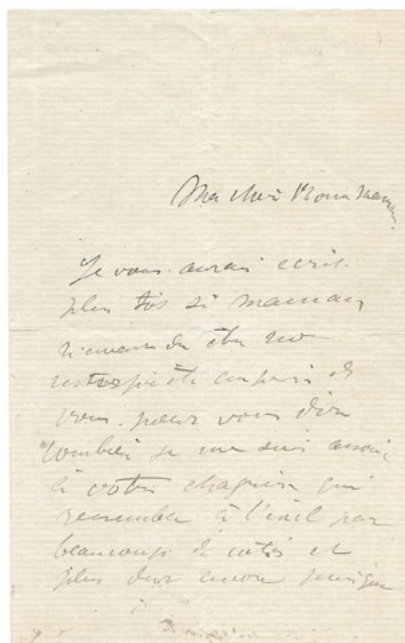 Ma chère Bonne Maman,
Je vous aurais écrit
plus tôt si maman
n'avait du être no
interprète auprès de
vous. pour vous dire
combien je me suis associé
à votre chagrin qui
ressemble à l'exil par
beaucoup de cotés et
plus dur encore puisque